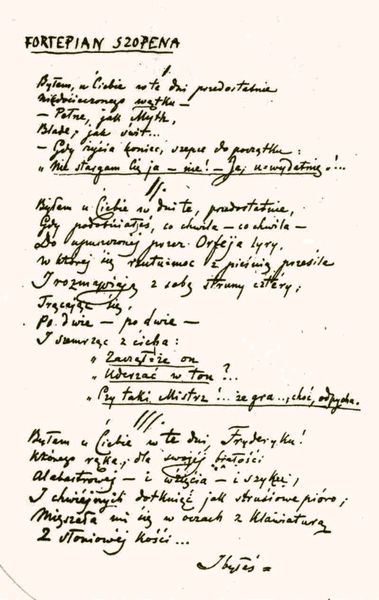 FORTEPIAN SZOPENA
I.
Byłem u Ciebie w te dni przedostatnie
Niedocieczonego wątku —
— Pełne, jak Myth,
Blade, jak świt...
— Gdy życia koniec, szepce do początku:
„Nie stargam Cię ja — nie! — Ja, uwydatnię!..
II.
Byłem u Ciebie w dni te, przedostatnie,
Gdy podobniałeś, co chwila — co chwila —
Do upuszczonej przez Orfeja lyry,
W której się rzutu-moc z pieśnią przesila
I rozmawiają z sobą struny cztéry;
Trącając się,
Po dwie — po dwie —
I szemrząc z cicha:
„Zacząłże on
„Uderzać w ton?..
„Czy taki Mistrz!... że gra.., choć, odpycha.
III.
Byłem u Ciebie w te dni, Fryderyku!
Którego ręka, dla swojéj białości
Alabastrowéj — i wzięcia — i szyku,
I chwiejnych dotknięć jak strusiowe pióro;
Mięszała mi się w oczach z klawiaturą
Z słoniowéj kości...
I byłeś =